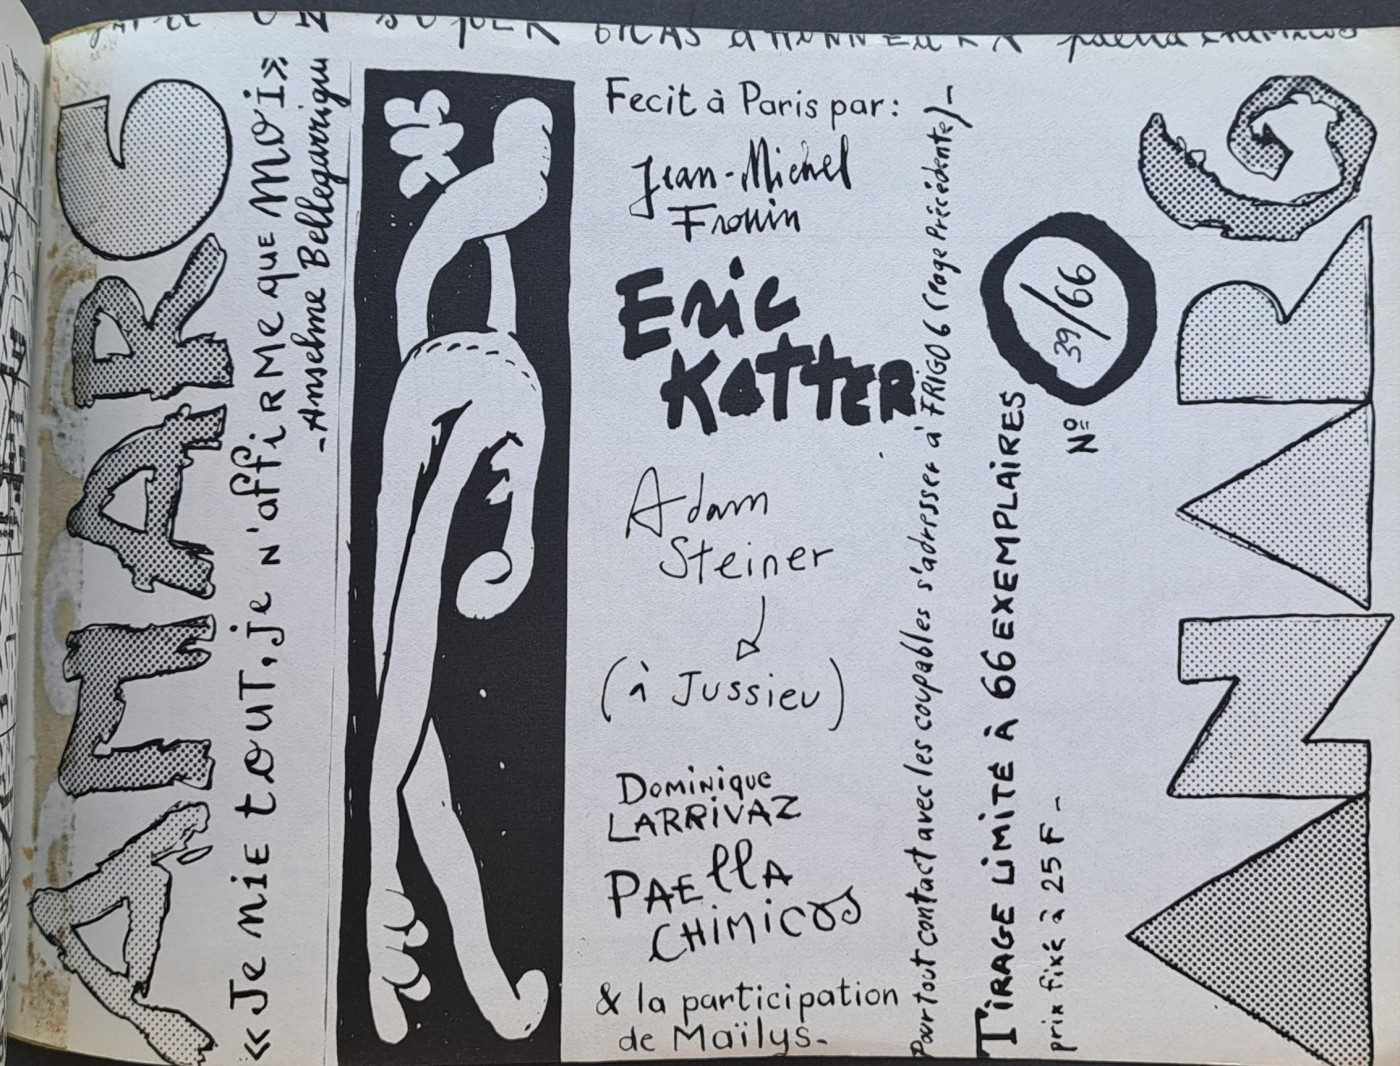 ANARG
«Je nie tout, je n'affirme que moi»
-Anselme Bellegarrigue
Fecit à Paris par:
Jean-Michel
Fronin
Eric
KATTER
Adam
Steiner
(à Jussieu)
Dominique
LARRIVAZ
PAEllA
CHIMICOS
& la participation
de Maïlys-
Pour tout contact avec les coupables s'adresser à FRIGO 6 (page Précédente)-
TIRAGE LIMITÉ À 66 EXEMPLAIRES
prix fixé à 25 F-
Nº 39/66
ANARG